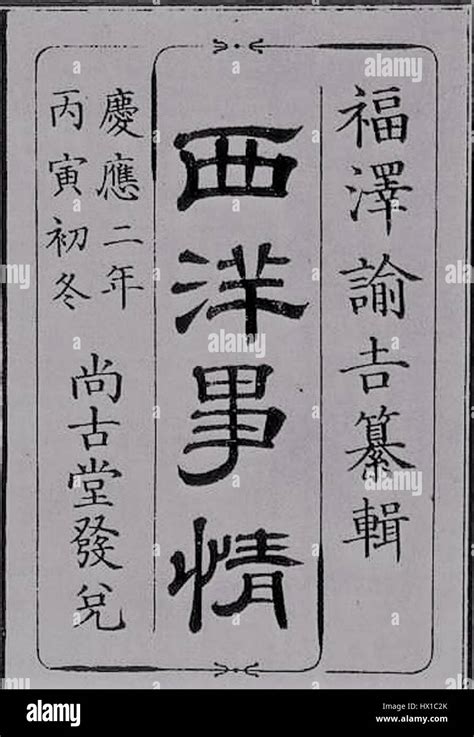 福澤諭吉纂輯
西洋事情
慶應二年
丙寅初冬
尚古堂發兌
alamy stock photo
HX1C2K
www.alamy.com